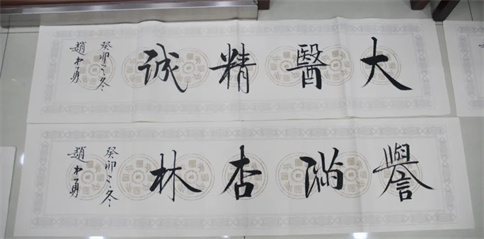 大醫精誠
癸卯之冬
趙本勇
譽滿杏林
癸卯之冬
趙本勇